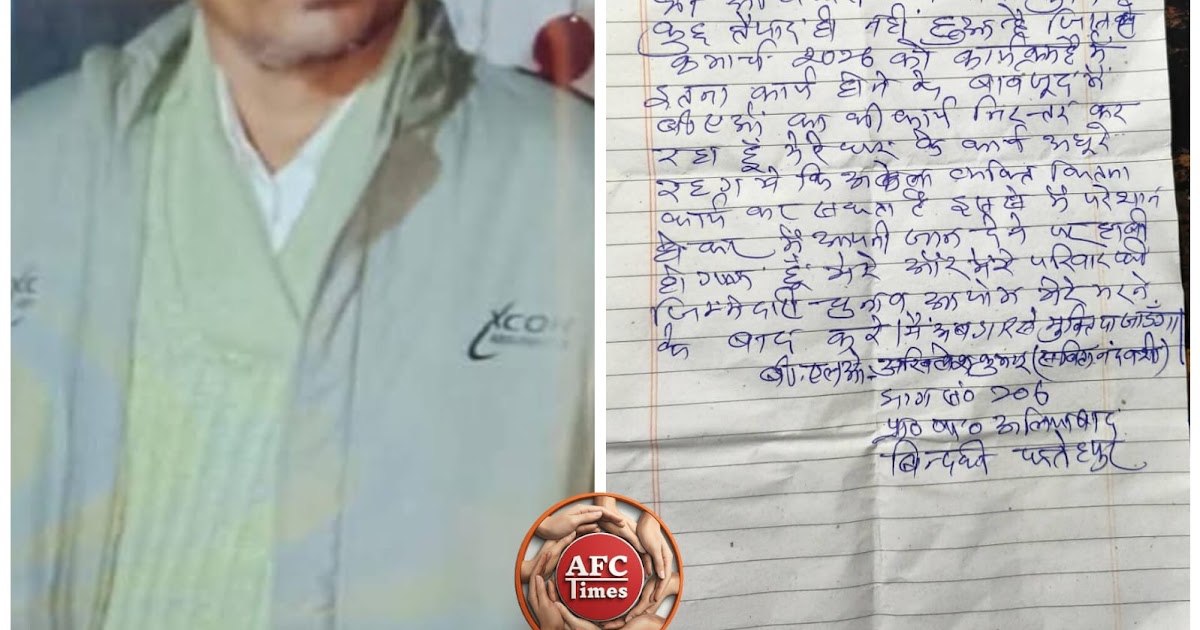 कुछ तैयार ही नहीं हुआ है जिससे
8 मार्च 2026 को कार्यक्रम है मैं
इतना कार्य होने के बावजूद मैं
बीएलओ का भी कार्य निरन्तर कर
रहा हूँ मेरे घर के कार्य अधूरे
रह गये कि अकेला व्यक्ति कितना
कार्य कर सकता है इससे मैं परेशान
हो कर मैं अपनी जान देने पर हावी
हो गया हूँ मेरे और मेरे परिवार की
जिम्मेदारी चुनाव आयोग मेरे मरने
के बाद करे। मैं अब गार से मुक्ति पा जाऊँगा।
बी.एलओ.- अखिलेश कुमार
भाग सं० 206
प्रा० पा० अलियाबाद
बिन्दकी फतेहपुर
XC
XCON
AFC
Times